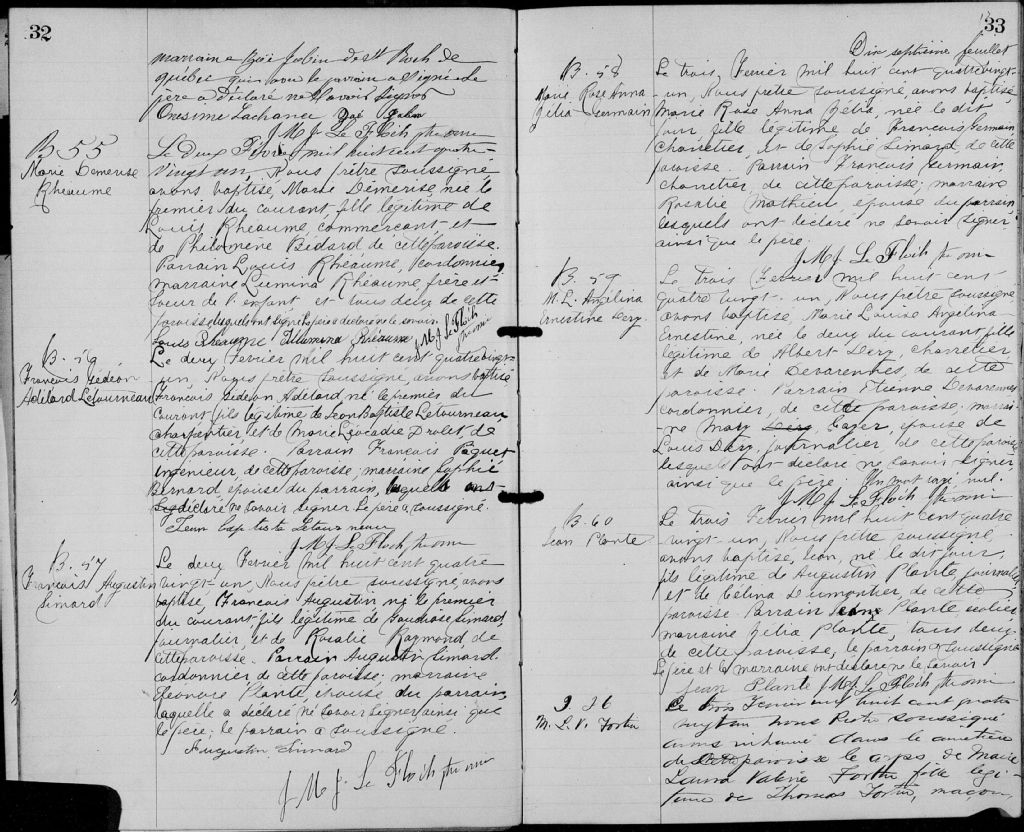 32
marraine Zoé Jobin de St Roch de
québec qui avec le parrain a signé Le
père a déclaré ne savoir signer
Onesime Lachance Zoé Jobin
J M J Le Floch ptre omi
B 55
Marie Demerise
Rhéaume
Le deux Février mil huit cent quatre-
vingt un, Nous prêtre soussigné
avons baptisé, Marie Demerise, née le
premier du courant, fille légitime de
Louis Rhéaume, commercant, et
de Philomène Bédard de cette paroisse.
Parrain Louis Rhéaume, cordonnier
marraine Lumina Rhéaume, frère et
soeur de l'enfant et tous deux de cette
paroisse lesquels ont signé le père a déclaré ne le savoir
Louis Rheaume Philumina Rhéaume J M J Le Floch
ptre omi
B. 56
François Gédéon
Adélard Letourneau
Le deux Fevrier mil huit cent quatre vingt-
un, Nous prêtre soussigné, avons baptisé
François Gédéon Adélard né le premier du
courant fils légitime de Jean Baptiste Letourneau
charpentier, et de Marie Léocadie Drolet de
cette paroisse. Parrain François Paquet
ingenieur, de cette paroisse; marraine Sophie
Bernard, épouse du parrain, laquelle
déclaré ne savoir signer Le père a soussigné.
Jean Baptiste Letourneau
J M J Le Floch ptre omi
B. 57
François Augustin
Simard
Le deux Fevrier mil huit cent quatre
vingt-un, Nous prêtre soussigné, avons
baptisé, François Augustin né le premier
du courant, fils légitime de Simard
journalier, et de Rosalie Raymond, de
cette paroisse. Parrain Augustin Simard
cordonnier de cette paroisse; marraine
Léonore Plante, épouse du parrain,
laquelle a déclaré ne savoir signer ainsi que
le père; le parrain a soussigné.
Augustin Simard
J M J Le Floch ptre omi
33
Dix septième feuillet
B. 58
Marie Rose Anna
Zélia Germain
Le trois, Fevrier mil huit cent quatre vingt-
un, Nous prêtre soussigné, avons baptisé,
Marie Rose Anna Zélia, née le dit
jour, fille légitime de François Germain,
charretier, et de Sophie Simard de cette
paroisse. Parrain François Germain,
charretier, de cette paroisse; marraine
Rosalie Mathieu épouse du parrain
lesquels ont déclaré ne savoir signer
ainsi que le père.
J M J Le Floch ptre omi
B. 59
M. L. Angélina
Ernestine Dery
Le trois Fevrier mil huit cent
quatre vingt-un, Nous prêtre soussigné
avons baptisé, Marie Louise Angelina
Ernestine, née le deux du courant fille
légitime de Albert Dery, charretier
et de Marie Devarennes, de cette
paroisse Parrain Etienne Devarennes
cordonnier, de cette paroisse. marrai-
ne Mary Dery, épouse de
Louis Déry, journalier de cette paroisse
lesquels ont déclaré ne savoir signer,
ainsi que le père. Un mot rayé nul.
J M J Le Floch ptre omi
B. 60
Jean Plante
Le trois Fevrier mil huit cent quatre
vingt-un, Nous prêtre soussigné
avons baptisé, Jean, né le dit jour,
fils légitime de Augustin Plante, journalier
et de Célina Dumontier, de cette
paroisse Parrain Jean Plante
marraine Zélia Plante, tous deux
de cette paroisse, le parrain a soussigné
Le père et la marraine ont déclaré ne le savoir
Jean Plante J M J Le Floch ptre omi
S 36
M. L. V. Fortin
Le trois Fevrier mil huit cent quatre
vingt un nous Pretre soussigné
avons inhumé dans le cimetière
de cette paroisse le corps de Marie
Laura Valérie Fortin fille légi-
time de Thomas Fortin, maçon,